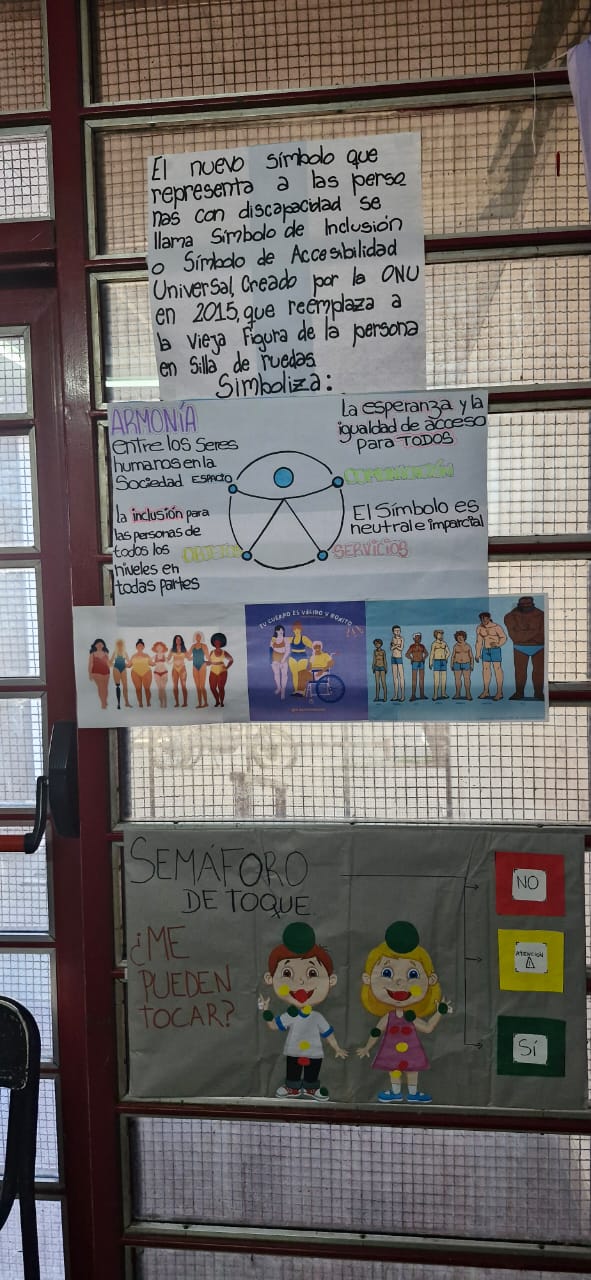 El nuevo símbolo que
representa a las perso
nas con discapacidad se
llama Símbolo de Inclusión
o Símbolo de Accesibilidad
Universal, Creado por la ONU
en 2015, que reemplaza a
la vieja figura de la persona
en Silla de ruedas
Simboliza:
ARMONÍA
entre los Seres
humanos en la
Sociedad
La esperanza y la
igualdad de acceso
para TODOS
ESPACIO
COMUNICACIÓN
la inclusión para
las personas de
todos los
niveles en
todas partes
El Símbolo es
neutral e imparcial
OBJETOS
SERVICIOS
TU CUERPO ES VÁLIDO Y BONITO
SEMÁFORO
DE TOQUE
¿ME
PUEDEN
TOCAR?
NO
ATENCIÓN
SÍ